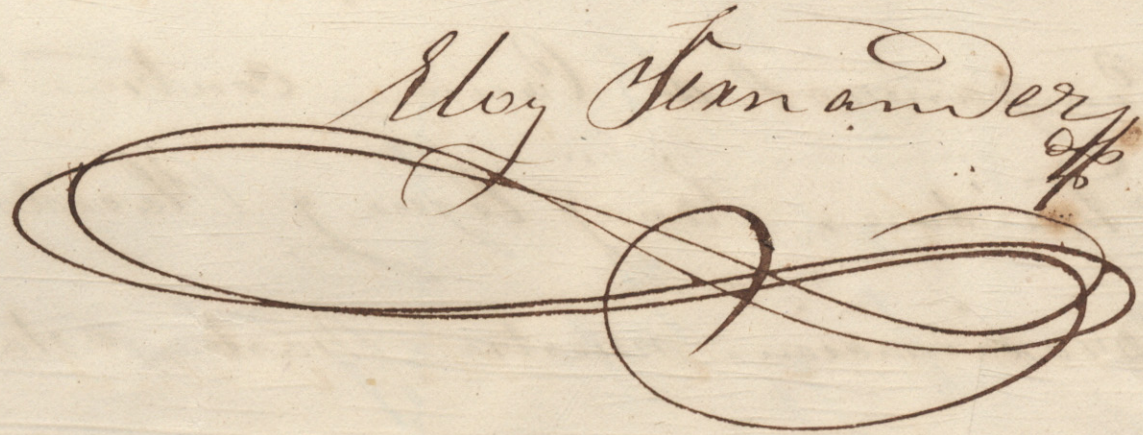 Eloy Fernandez